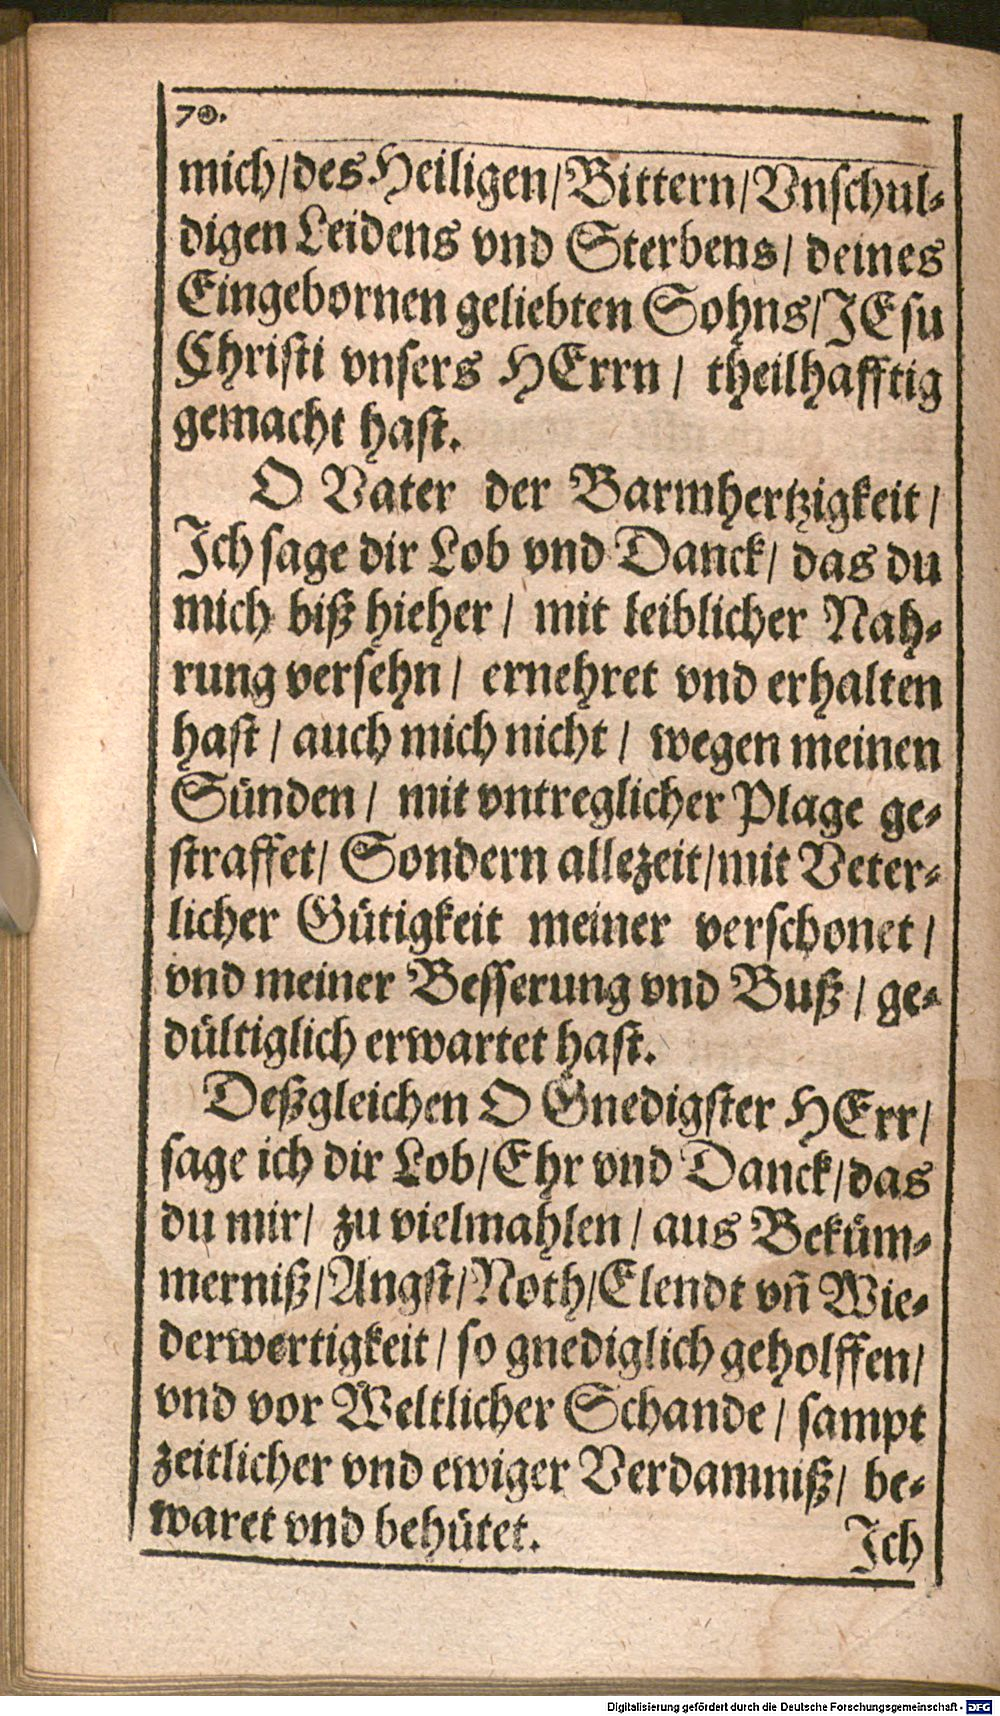 70.
mich/des Heiligen/Bittern/Vnschul-
digen Leidens vnd Sterbens/ deines
Eingebornen geliebten Sohns/JEsu
Christi vnsers HErrn/ theilhafftig
gemacht hast.
O Vater der Barmhertzigkeit/
Ich sage dir Lob vnd Danck/ das du
mich biß hieher/ mit leiblicher Nah-
rung versehn/ ernehret vnd erhalten
hast/ auch mich nicht/ wegen meinen
Sünden/ mit vntreglicher Plage ge-
straffet/ Sondern allezeit/mit Veter-
licher Gütigkeit meiner verschonet/
vnd meiner Besserung vnd Buß/ ge-
dültiglich erwartet hast.
Deßgleichen O Gnedigster HErr/
sage ich dir Lob/Ehr vnd Danck/das
du mir/ zu vielmahlen/ aus Beküm-
merniß/Angst/Noth/Elendt vn̄ Wie-
derwertigkeit/ so gnediglich geholffen/
vnd vor Weltlicher Schande/ sampt
zeitlicher vnd ewiger Verdamniß/ be-
waret vnd behütet.
Ich
Digitalisierung gefördert durch die Deutsche Forschungsgemeinschaft - DFG